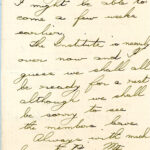 I might be able to
come a few weeks
earlier.
The Institute is nearly
over now and I
guess we shall all
be ready for a rest
although we shall
be sorry to see
the members leave
Always with much